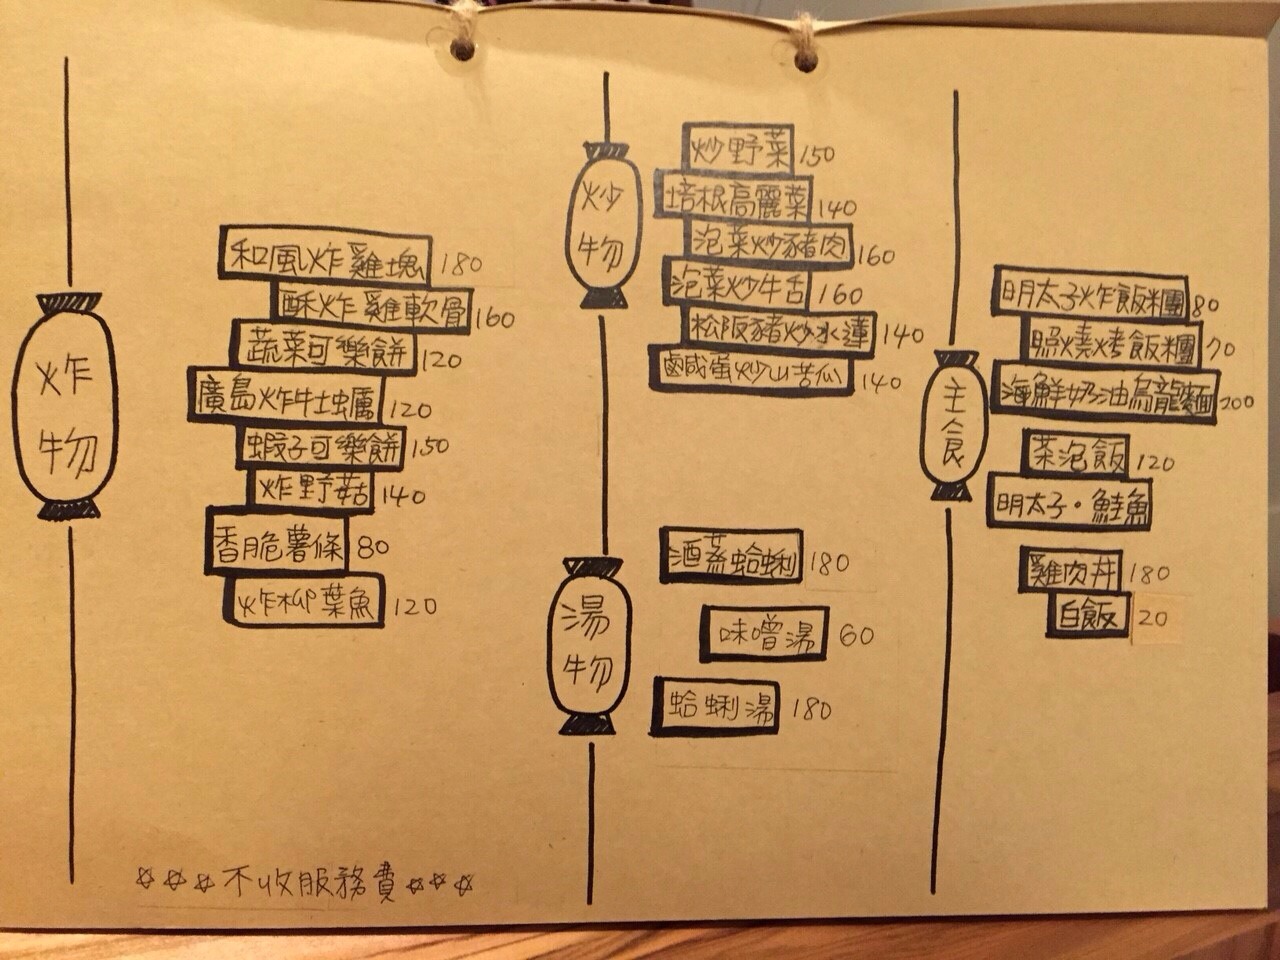 炸物
和風炸雞塊 180
酥炸雞軟骨 160
蔬菜可樂餅 120
廣島炸牡蠣 120
蝦子可樂餅 150
炸野菇 140
香脆薯條 80
炸柳葉魚 120
炒物
炒野菜 150
培根高麗菜 140
泡菜炒豬肉 160
泡菜炒牛舌 160
松阪豬炒水蓮 140
鹹蛋炒山苦瓜 140
湯物
酒蒸蛤蜊 180
味噌湯 60
蛤蜊湯 180
主食
明太子炸飯糰 80
照燒烤飯糰 70
海鮮奶油烏龍麵 200
茶泡飯 120
明太子·鮭魚
雞肉丼 180
白飯 20
☆☆☆不收服務費☆☆☆